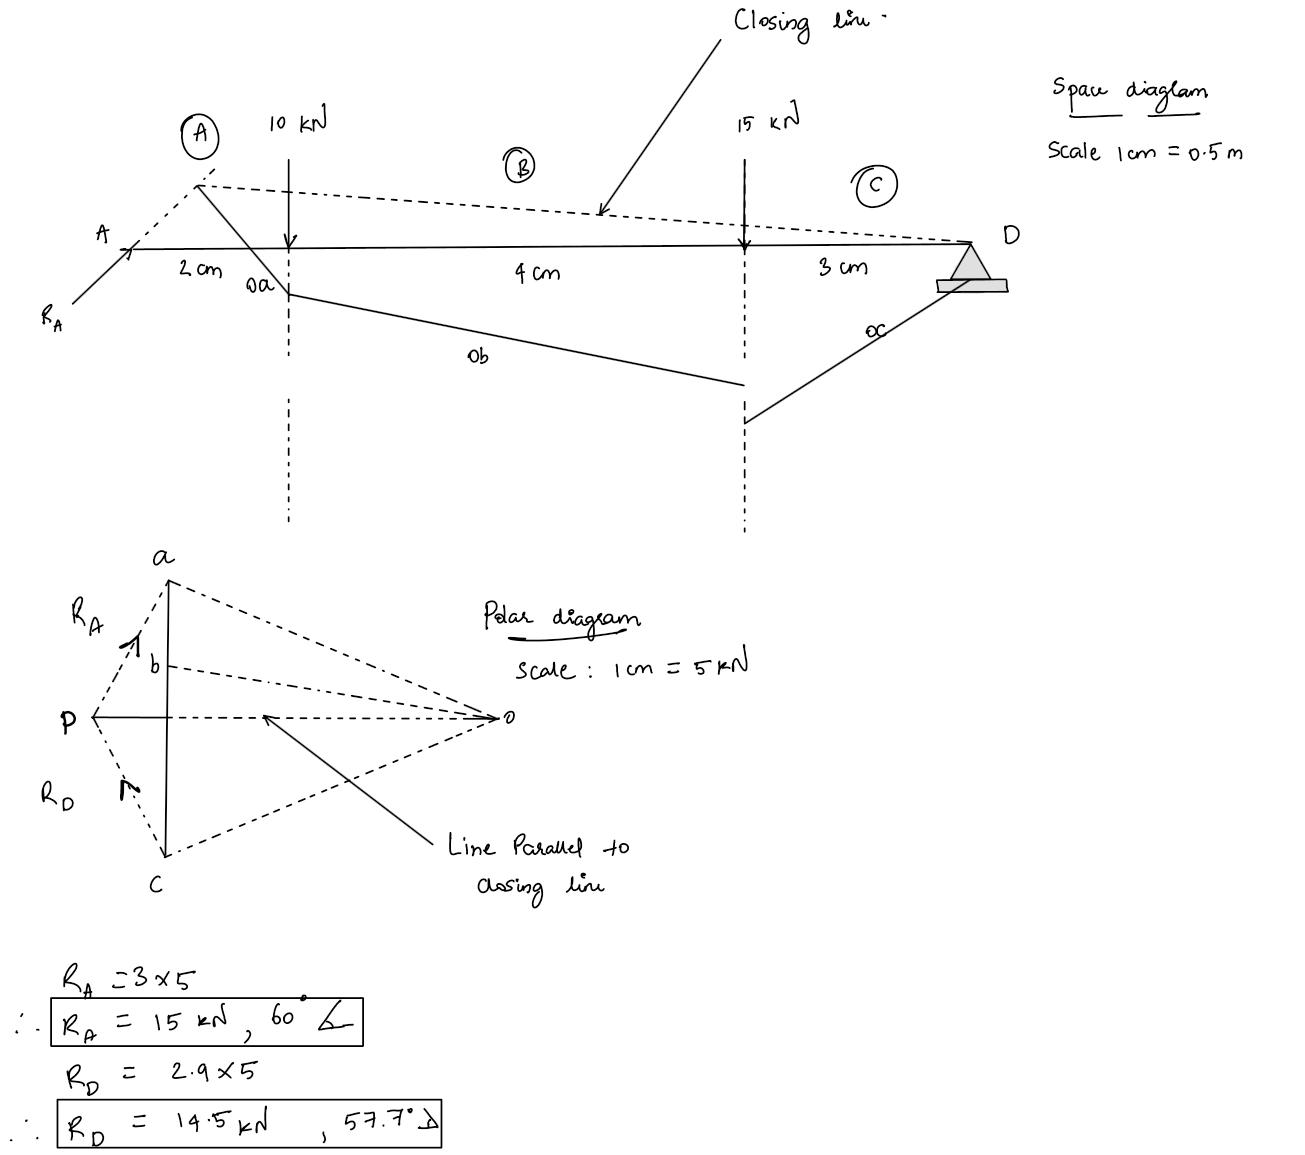 Closing line.
Space diaglam
Scale 1 cm = 0.5 m
10 kN
15 kN
A
B
C
A
D
2 cm
4 cm
3 cm
RA
oa
ob
oc
a
RA
b
P
o
RD
C
Polar diagram
Scale : 1 cm = 5 kN
Line Parallel to
closing line
RA = 3 × 5
∴ RA = 15 kN, 60°
RD = 2.9 × 5
∴ RD = 14.5 kN , 57.7°